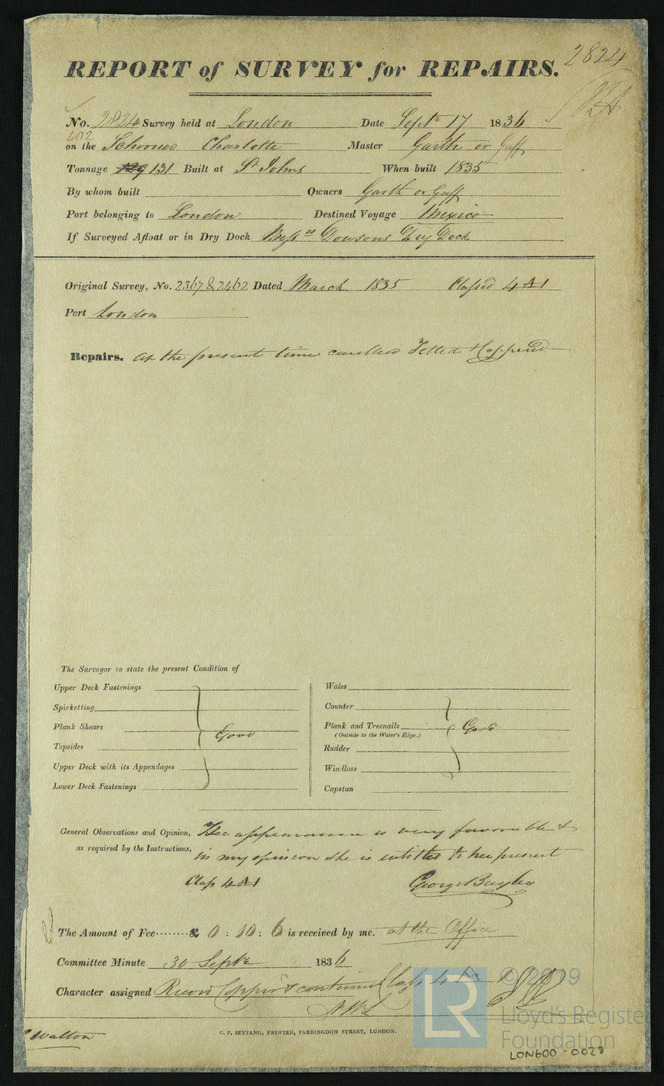 REPORT of SURVEY for REPAIRS. 2824
No. 2824 Survey held at London Date Sept 17 1836
602
on the Schooner Charlotte Master Garth or Gaff
Tonnage 129 131 Built at St Johns When built 1835
By whom built Owners Garth or Gaff
Port belonging to London Destined Voyage Mexico
If Surveyed Afloat or in Dry Dock Messrs Dowsons Dry Dock
Original Survey, No. 2367 & 2462 Dated March 1835 Classed 4 A 1
Port London
Repairs. At the present time caulked Felted & Coppered
The Surveyor to state the present Condition of
Upper Deck Fastenings
Spirketting
Plank Shears
Good
Topsides
Upper Deck with its Appendages
Lower Deck Fastenings
Wales
Counter
Plank and Treenails Good
(Outside to the Water's Edge.)
Rudder
Windlass
Capstan
General Observations and Opinion, Her appearance is very favorable &
as required by the Instructions, in my opinion she is entitled to her present
Class 4 A 1 George Bayley
The Amount of Fee £ 0 : 10 : 6 is received by me. at the Office
Committee Minute 30 Septr 1836
Character assigned Record Copper & continued Class 4
Walton
C. F. SEYFANG, PRINTER, FARRINGDON STREET, LONDON.
LR
© 2019
Lloyd's Register
Foundation
LON600-0028